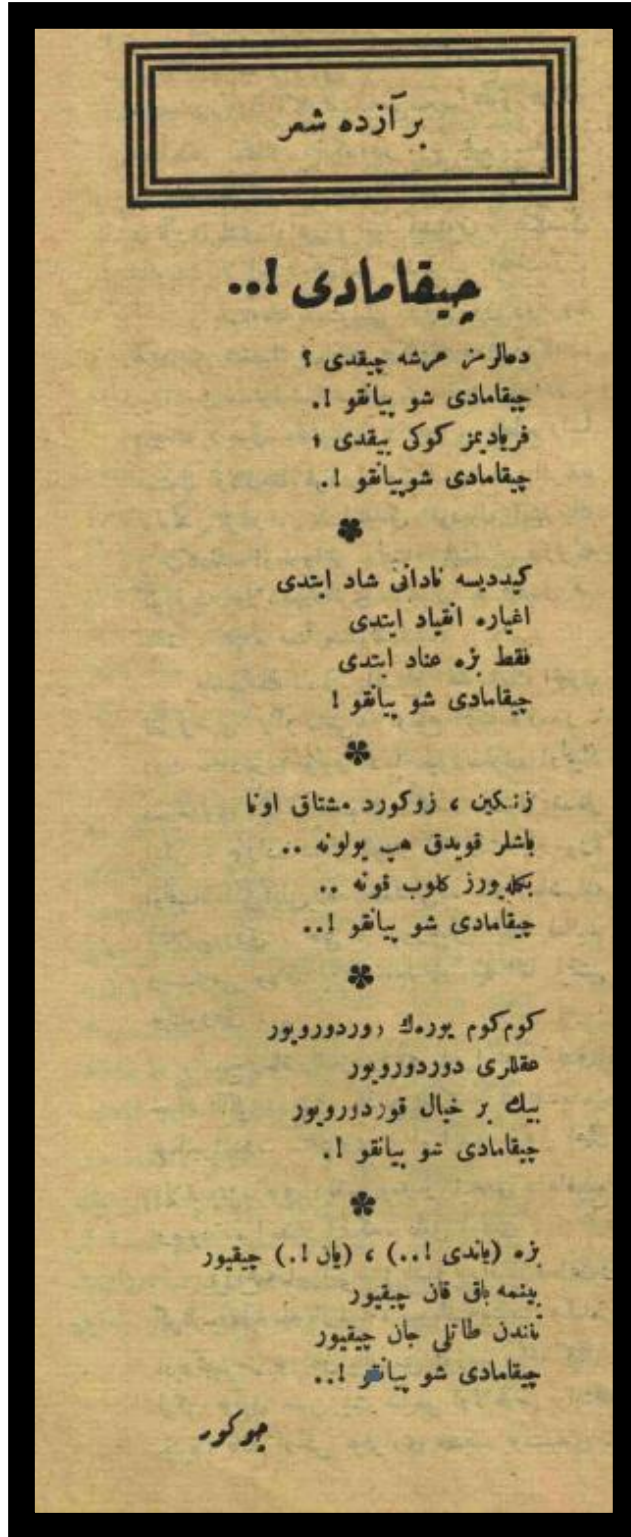 بر آزده شعر
چیقامادی !..
دعالرمز عرشه چیقدی ؟
چیقامادی شو پیانقو !.
فریادیمز کوکی ییقدی ؛
چیقامادی شو پیانقو !.
کیددیسه نادانی شاد ایتدی
اغیاره انقیاد ایتدی
فقط بزه عناد ایتدی
چیقامادی شو پیانقو !
زنکین ، زوکورد مشتاق اوڭا
باشلر قویدق هپ یولونه ..
بکله‌یورز کلوب قونه ..
چیقامادی شو پیانقو !..
کوم کوم یوره‌ك ووردورویور
عقللری دوردورویور
بیك بر خیال قوردورویور
چیقامادی شو پیانقو !.
بزه (یاندی !..) ، (یان !.) چیقیور
بینمه باق قان چیقیور
تندن طاتلی جان چیقیور
چیقامادی شو پیانقو !..
چوکور